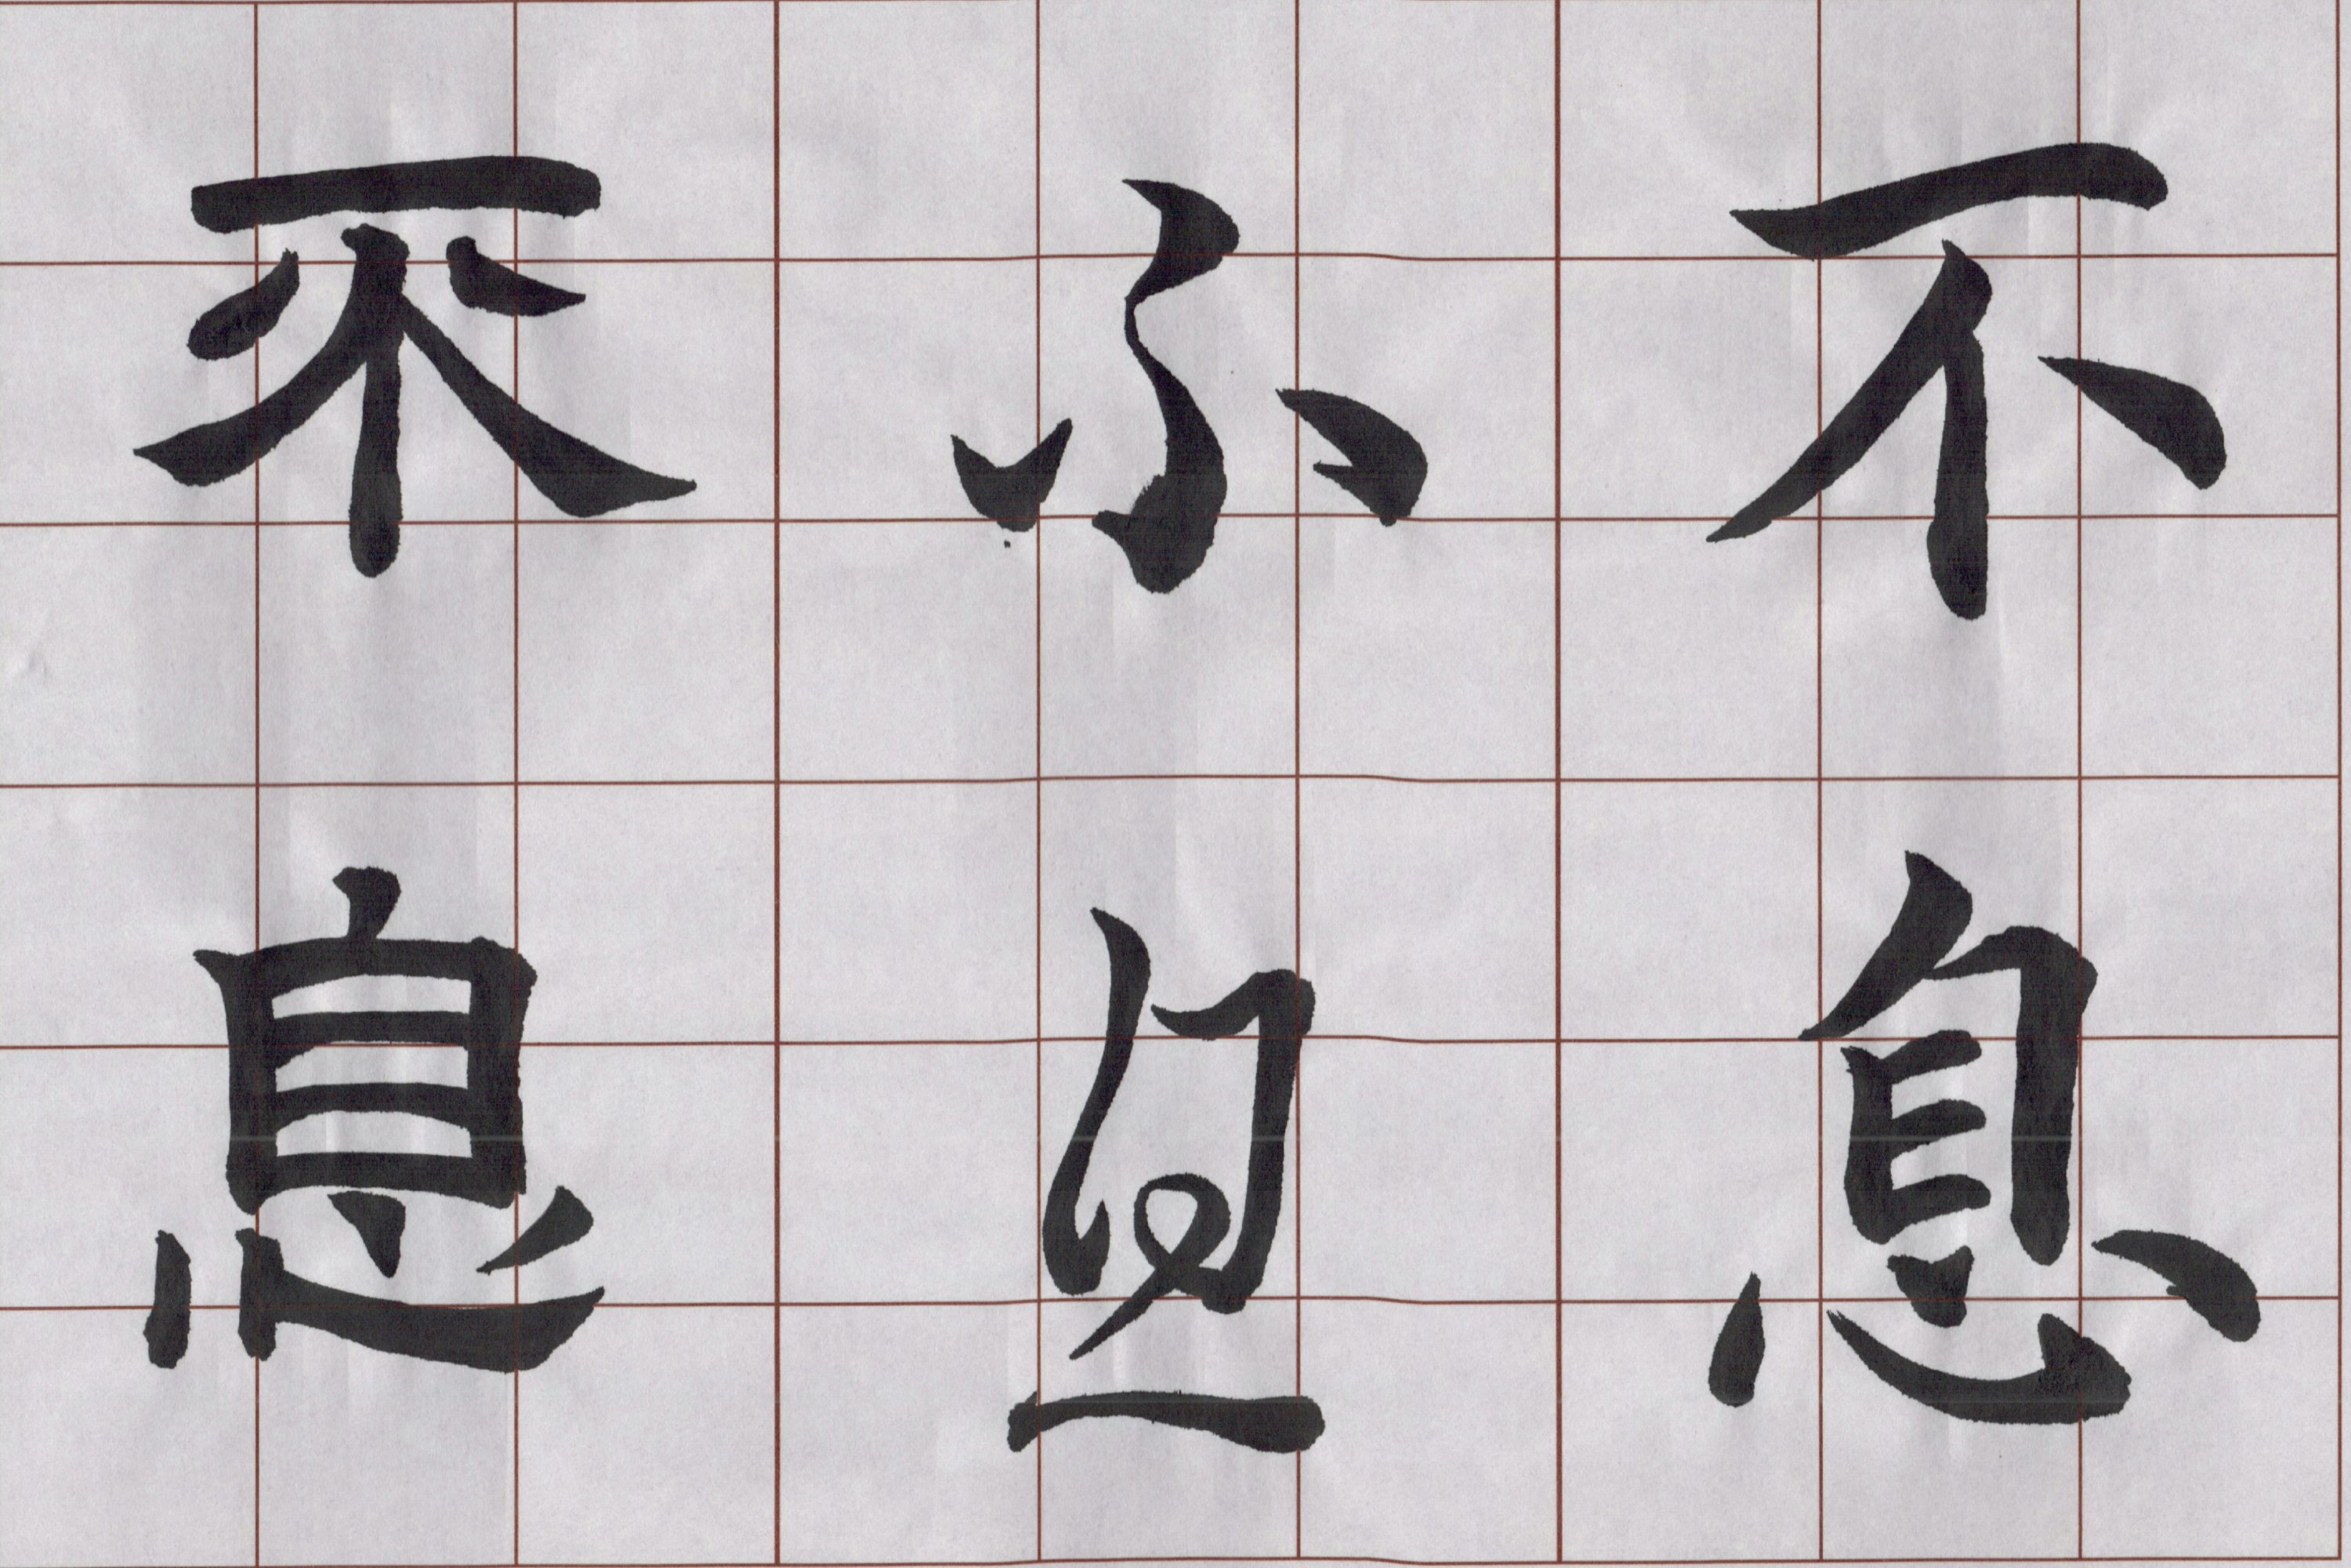 不息
不息
不息